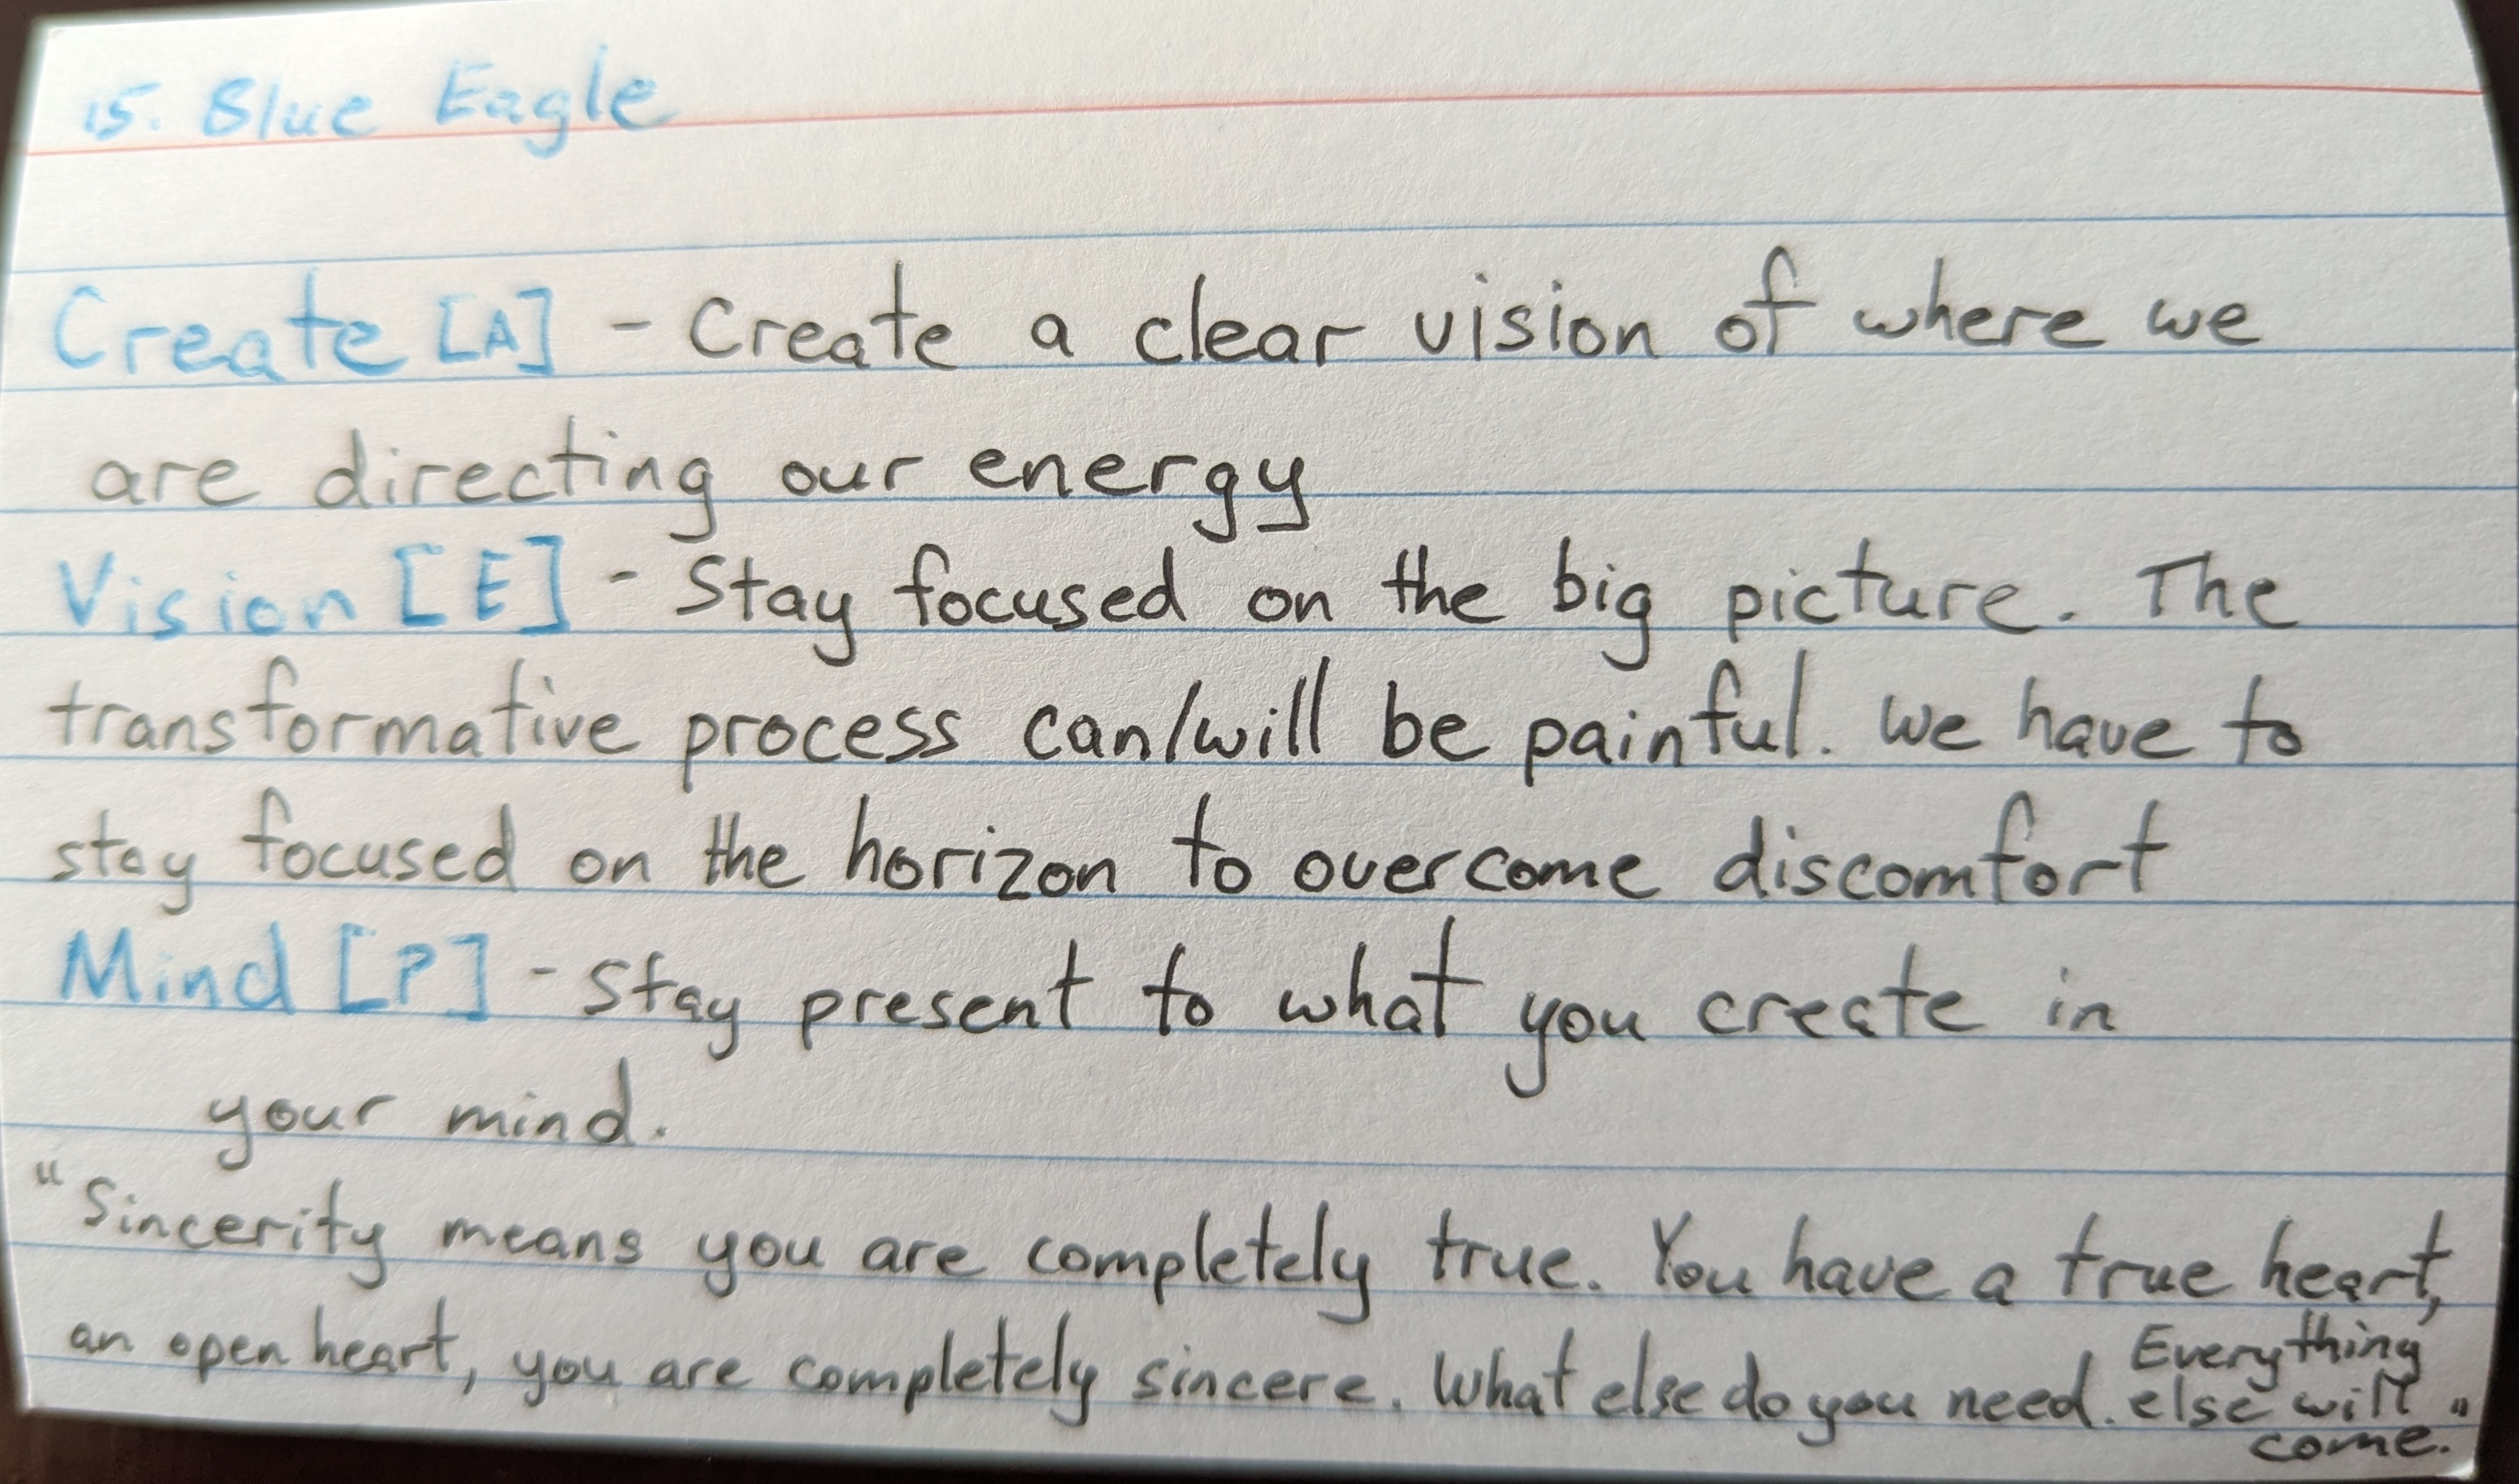 15. Blue Eagle
Create [A] - Create a clear vision of where we
are directing our energy
Vision [E] - Stay focused on the big picture. The
transformative process can/will be painful. We have to
stay focused on the horizon to overcome discomfort
Mind [P] - Stay present to what you create in
your mind.
"Sincerity means you are completely true. You have a true heart,
an open heart, you are completely sincere. What else do you need. Everything
else will
come."